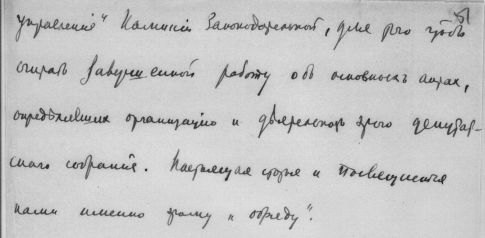 управленія" Комиссіи Законодательной, для того чтобъ
считать завершенной работу объ основныхъ актахъ,
опредѣлявшихъ организацію и дѣятельность этого депутат-
скаго собранія. Настоящая статья и посвящается
нами именно этому "обряду".